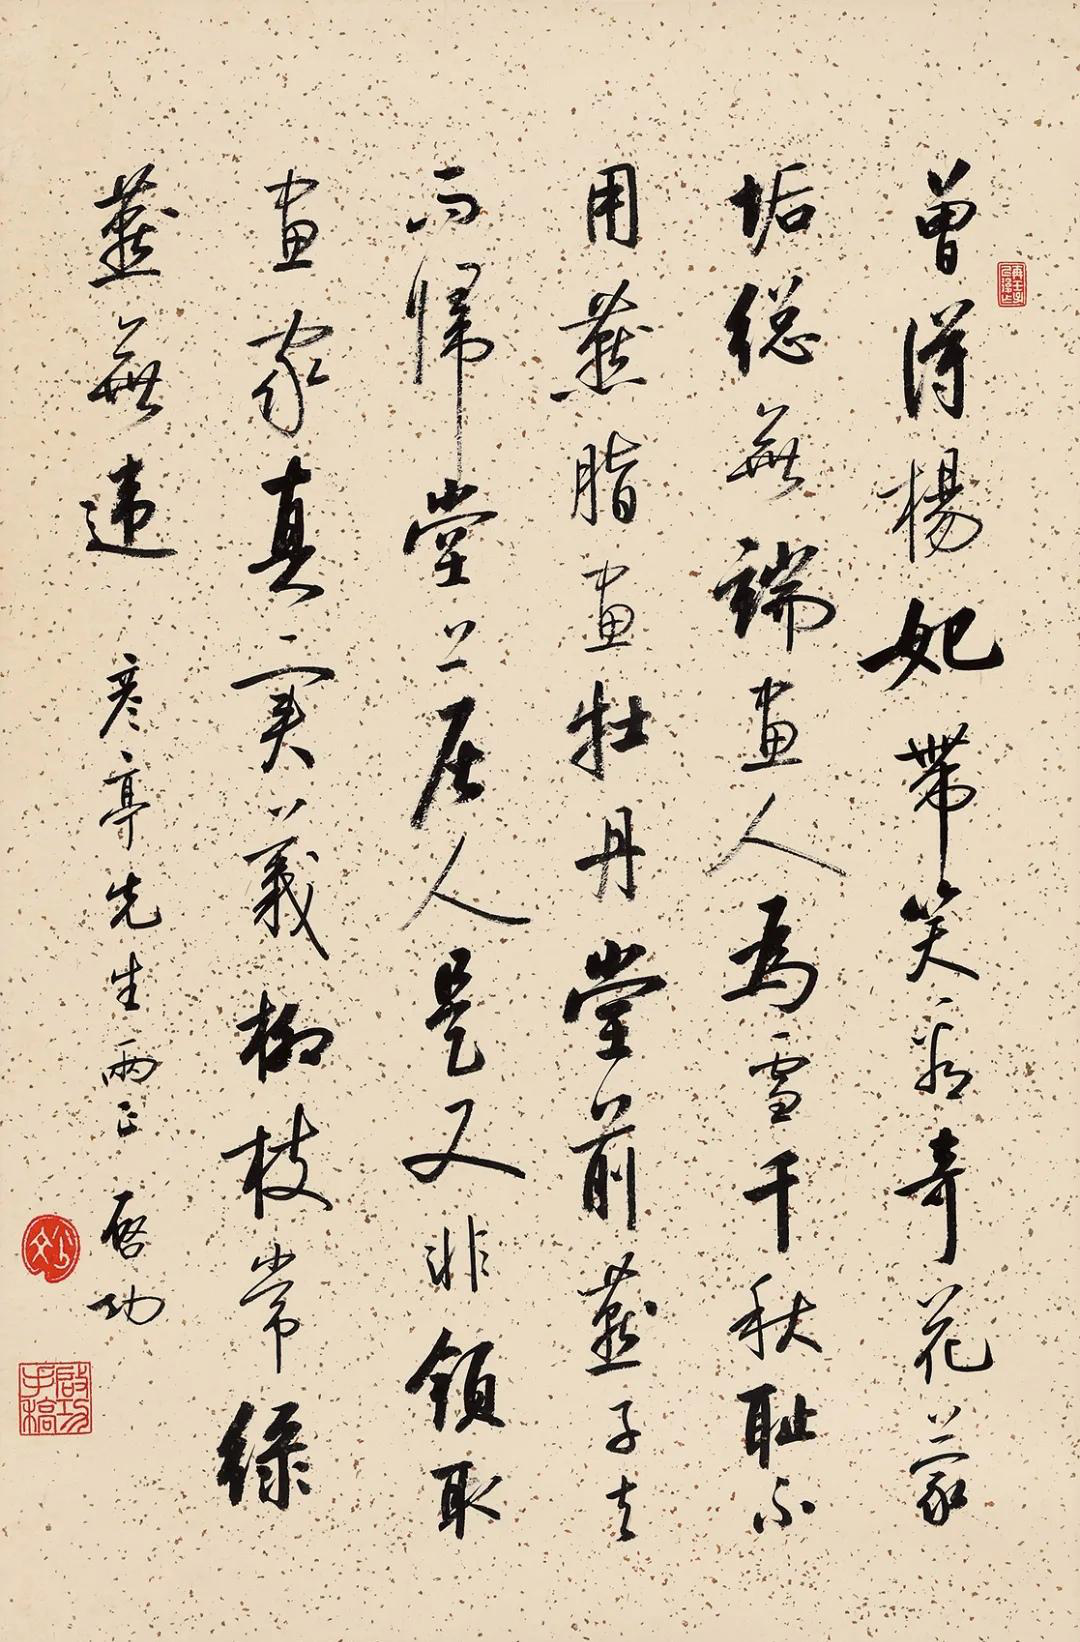 曾得楊妃帶笑看奇花蒙
垢總無端畫人為雪千秋耻不
用燕脂畫牡丹堂前燕子去
而歸堂上居人是又非領取
畫家真實義柳枝常綠
燕無違 彥亭先生兩正 啓功
啟功手稿